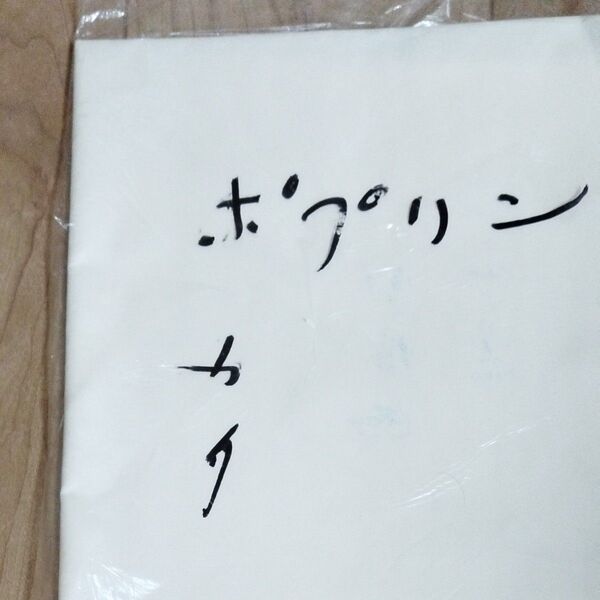 ポプリン
カ
ク